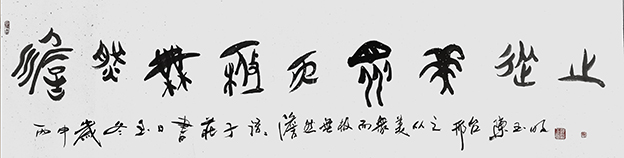 澹然無極而眾美從之
丙申歲冬至日書莊子語澹然無极而衆美从之邢台